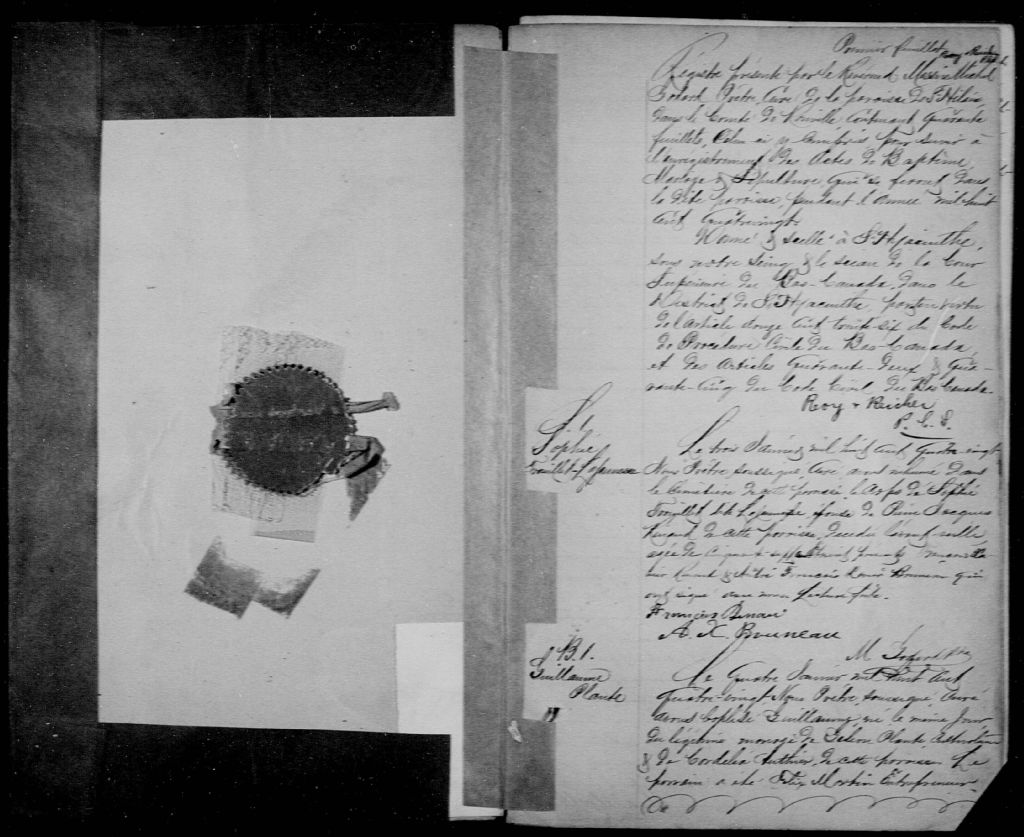 Premier feuillet Roy & Richer P.C.S.
Registre présenté par le Révérend Messire Michel
Godard Prêtre, Curé de la paroisse de St Hilaire,
dans le Comté de Rouville contenant quarante
feuillets, Celui-ci y compris pour servir à
l'enregistrement des Actes de Baptême,
Mariage & Sépulture, qui se feront dans
la dite paroisse, pendant l'année mil huit
cent quatrevingt.
Donné & scellé à St Hyacinthe,
sous notre seing & le sceau de la Cour
Supérieure du Bas-Canada, dans le
District de St Hyacinthe,
de l'article douze cent trente six du Code
de Procédure Civile du Bas Canada,
et des Articles Quarante-deux & Qua-
rante-cinq du Code Civil du Bas Canada.
Roy & Richer
P. C. S.
S.
Sophie
Le trois Janvier mil huit cent quatre-vingt
Nous Prêtre soussigné Curé avons inhumé dans
le Cimetière de cette paroisse le corps de Sophie
dite Lajeunesse épouse de Jacques
de cette paroisse, décédée
agée de cinquante-sept
François qui
ont signé avec nous Lecture faite.
François
A. X. Bruneau
M. Godard Ptre
B. 1.
Guillaume
Plante
Le Quatre Janvier mil huit cent
quatre-vingt Nous Prêtre, soussigné, Curé
avons baptisé Guillaume, né le même jour
du légitime mariage de Plante
& de Cordélia Authier, de cette paroisse Le
parrain a été Félix Martin Entrepreneur